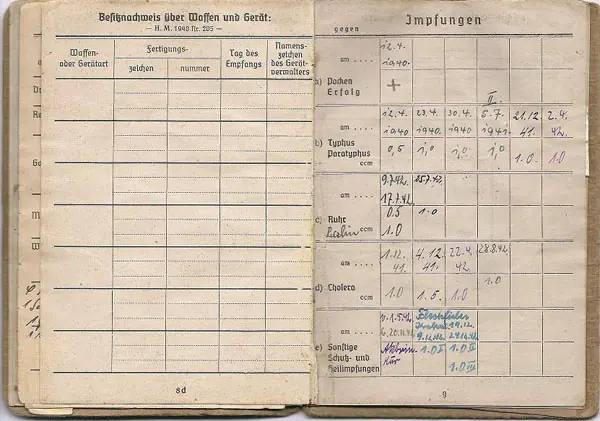 Besitznachweis über Waffen und Gerät:
— H. M. 1940 Nr. 205 —
Waffen-
oder Gerätart
Fertigungs-
zeichen
nummer
Tag des
Empfangs
Namens-
zeichen
des Gerät-
verwalters
8d
Impfungen
gegen
12.4.
am .... 1940.
a) Pocken +
Erfolg
II.
12.4. 23.4. 30.4. 5.7. 21.12. 2.4.
am .... 1940 1940. 1940 1941. 41. 42.
b) Typhus 0,5 1,0 1,0 1,0 1.0 1.0
Paratyphus
ccm
9.7.42. 25.7.42.
am .... 17.7.42.
c) Ruhr 0.5 1.0
ccm 1.0
1.12. 4.12. 22.4. 28.8.42.
am .... 41. 41. 42.
d) Cholera 1.0 1.5. 1.0 1.0
ccm
v. 1.5.42.
am .... 19.12.
9.12.42. 29.12.42.
e) Sonstige Atebrin- 1.0 I 1.0 II
Schutz- und Kur
Heilimpfungen 1.0 III
9